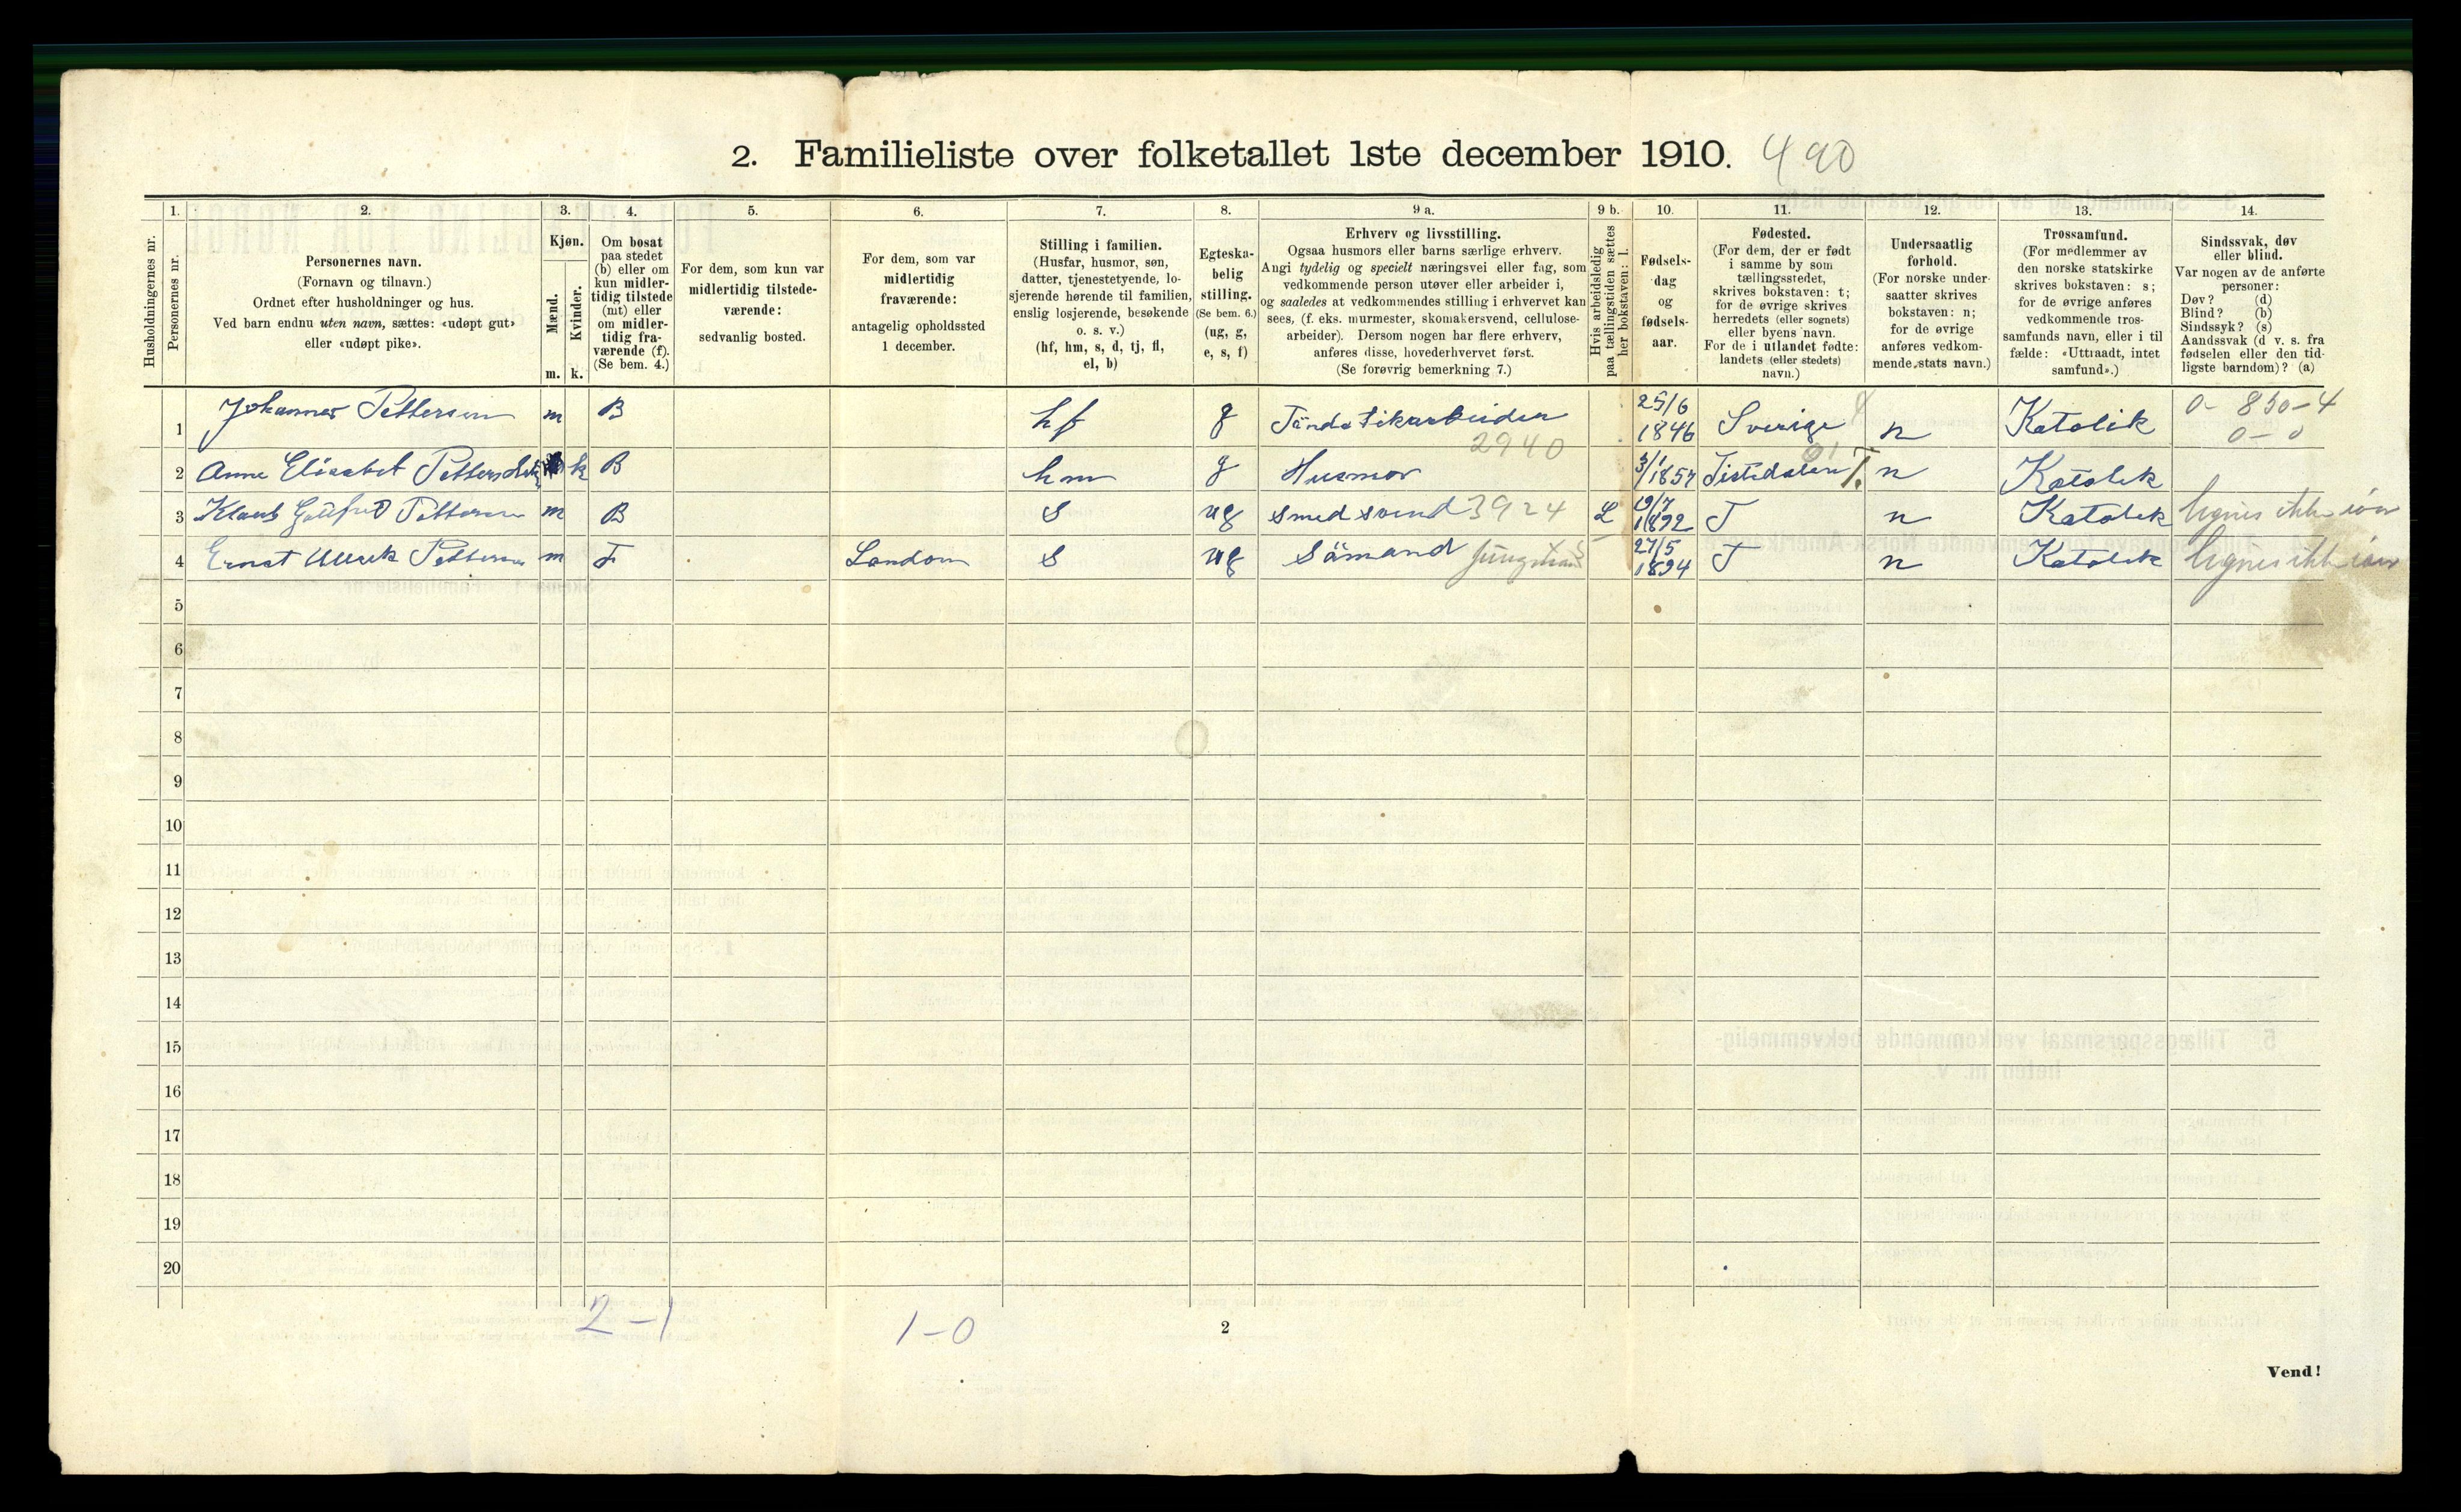 2. Familieliste over folketallet 1ste december 1910. 490
Husholdningernes nr.
1. Personernes nr.
2. Personernes navn.
(Fornavn og tilnavn.)
Ordnet efter husholdninger og hus.
Ved barn endnu uten navn, sættes: «udøpt gut»
eller «udøpt pike».
3. Kjøn.
Mænd. m.
Kvinder. k.
4. Om bosat
paa stedet
(b) eller om
kun midler-
tidig tilstede
(mt) eller
om midler-
tidig fra-
værende (f).
(Se bem. 4.)
5. For dem, som kun var
midlertidig tilstede-
værende:
sedvanlig bosted.
6. For dem, som var
midlertidig
fraværende:
antagelig opholdssted
1 december.
7. Stilling i familien.
(Husfar, husmor, søn,
datter, tjenestetyende, lo-
sjerende hørende til familien,
enslig losjerende, besøkende
o. s. v.)
(hf, hm, s, d, tj, fl,
el, b)
8. Egteska-
belig
stilling.
(Se bem. 6.)
(ug, g,
e, s, f)
9 a. Erhverv og livsstilling.
Ogsaa husmors eller barns særlige erhverv.
Angi tydelig og specielt næringsvei eller fag, som
vedkommende person utøver eller arbeider i,
og saaledes at vedkommendes stilling i erhvervet kan
sees, (f. eks. murmester, skomakersvend, cellulose-
arbeider). Dersom nogen har flere erhverv,
anføres disse, hovederhvervet først.
(Se forøvrig bemerkning 7.)
9 b. Hvis arbeidsledig
paa tællingstiden sættes
her bokstaven: l.
10. Fødsels-
dag
og
fødsels-
aar.
11. Fødested.
(For dem, der er født
i samme by som
tællingsstedet,
skrives bokstaven: t;
for de øvrige skrives
herredets (eller sognets)
eller byens navn.
For de i utlandet fødte:
landets (eller stedets)
navn.)
12. Undersaatlig
forhold.
(For norske under-
saatter skrives
bokstaven: n;
for de øvrige
anføres vedkom-
mende stats navn.)
13. Trossamfund.
(For medlemmer av
den norske statskirke
skrives bokstaven: s;
for de øvrige anføres
vedkommende tros-
samfunds navn, eller i til
fælde: «Uttraadt, intet
samfund».)
14. Sindssvak, døv
eller blind.
Var nogen av de anførte
personer:
Døv? (d)
Blind? (b)
Sindssyk? (s)
Aandssvak (d v. s. fra
fødselen eller den tid-
ligste barndom)? (a)
1 Johannes Pettersen m B hf g 2940 25/6 1846 Sverige n Katolik 0-850-4
0-0
2 Anne Elisabet k B hm g Husmor 3/1 1857 Tistedalen n Katolik
3 Klaus Pettersen m B S ug Smedsvend 3924 L 19/7 1892 T n Katolik
4 Ernst Pettersen m F London S ug Sömand 27/5 1894 T n Katolik
5
6
7
8
9
10
11
12
13
14
15
16
17
18
19
20
2-1 1-0
2
Vend!